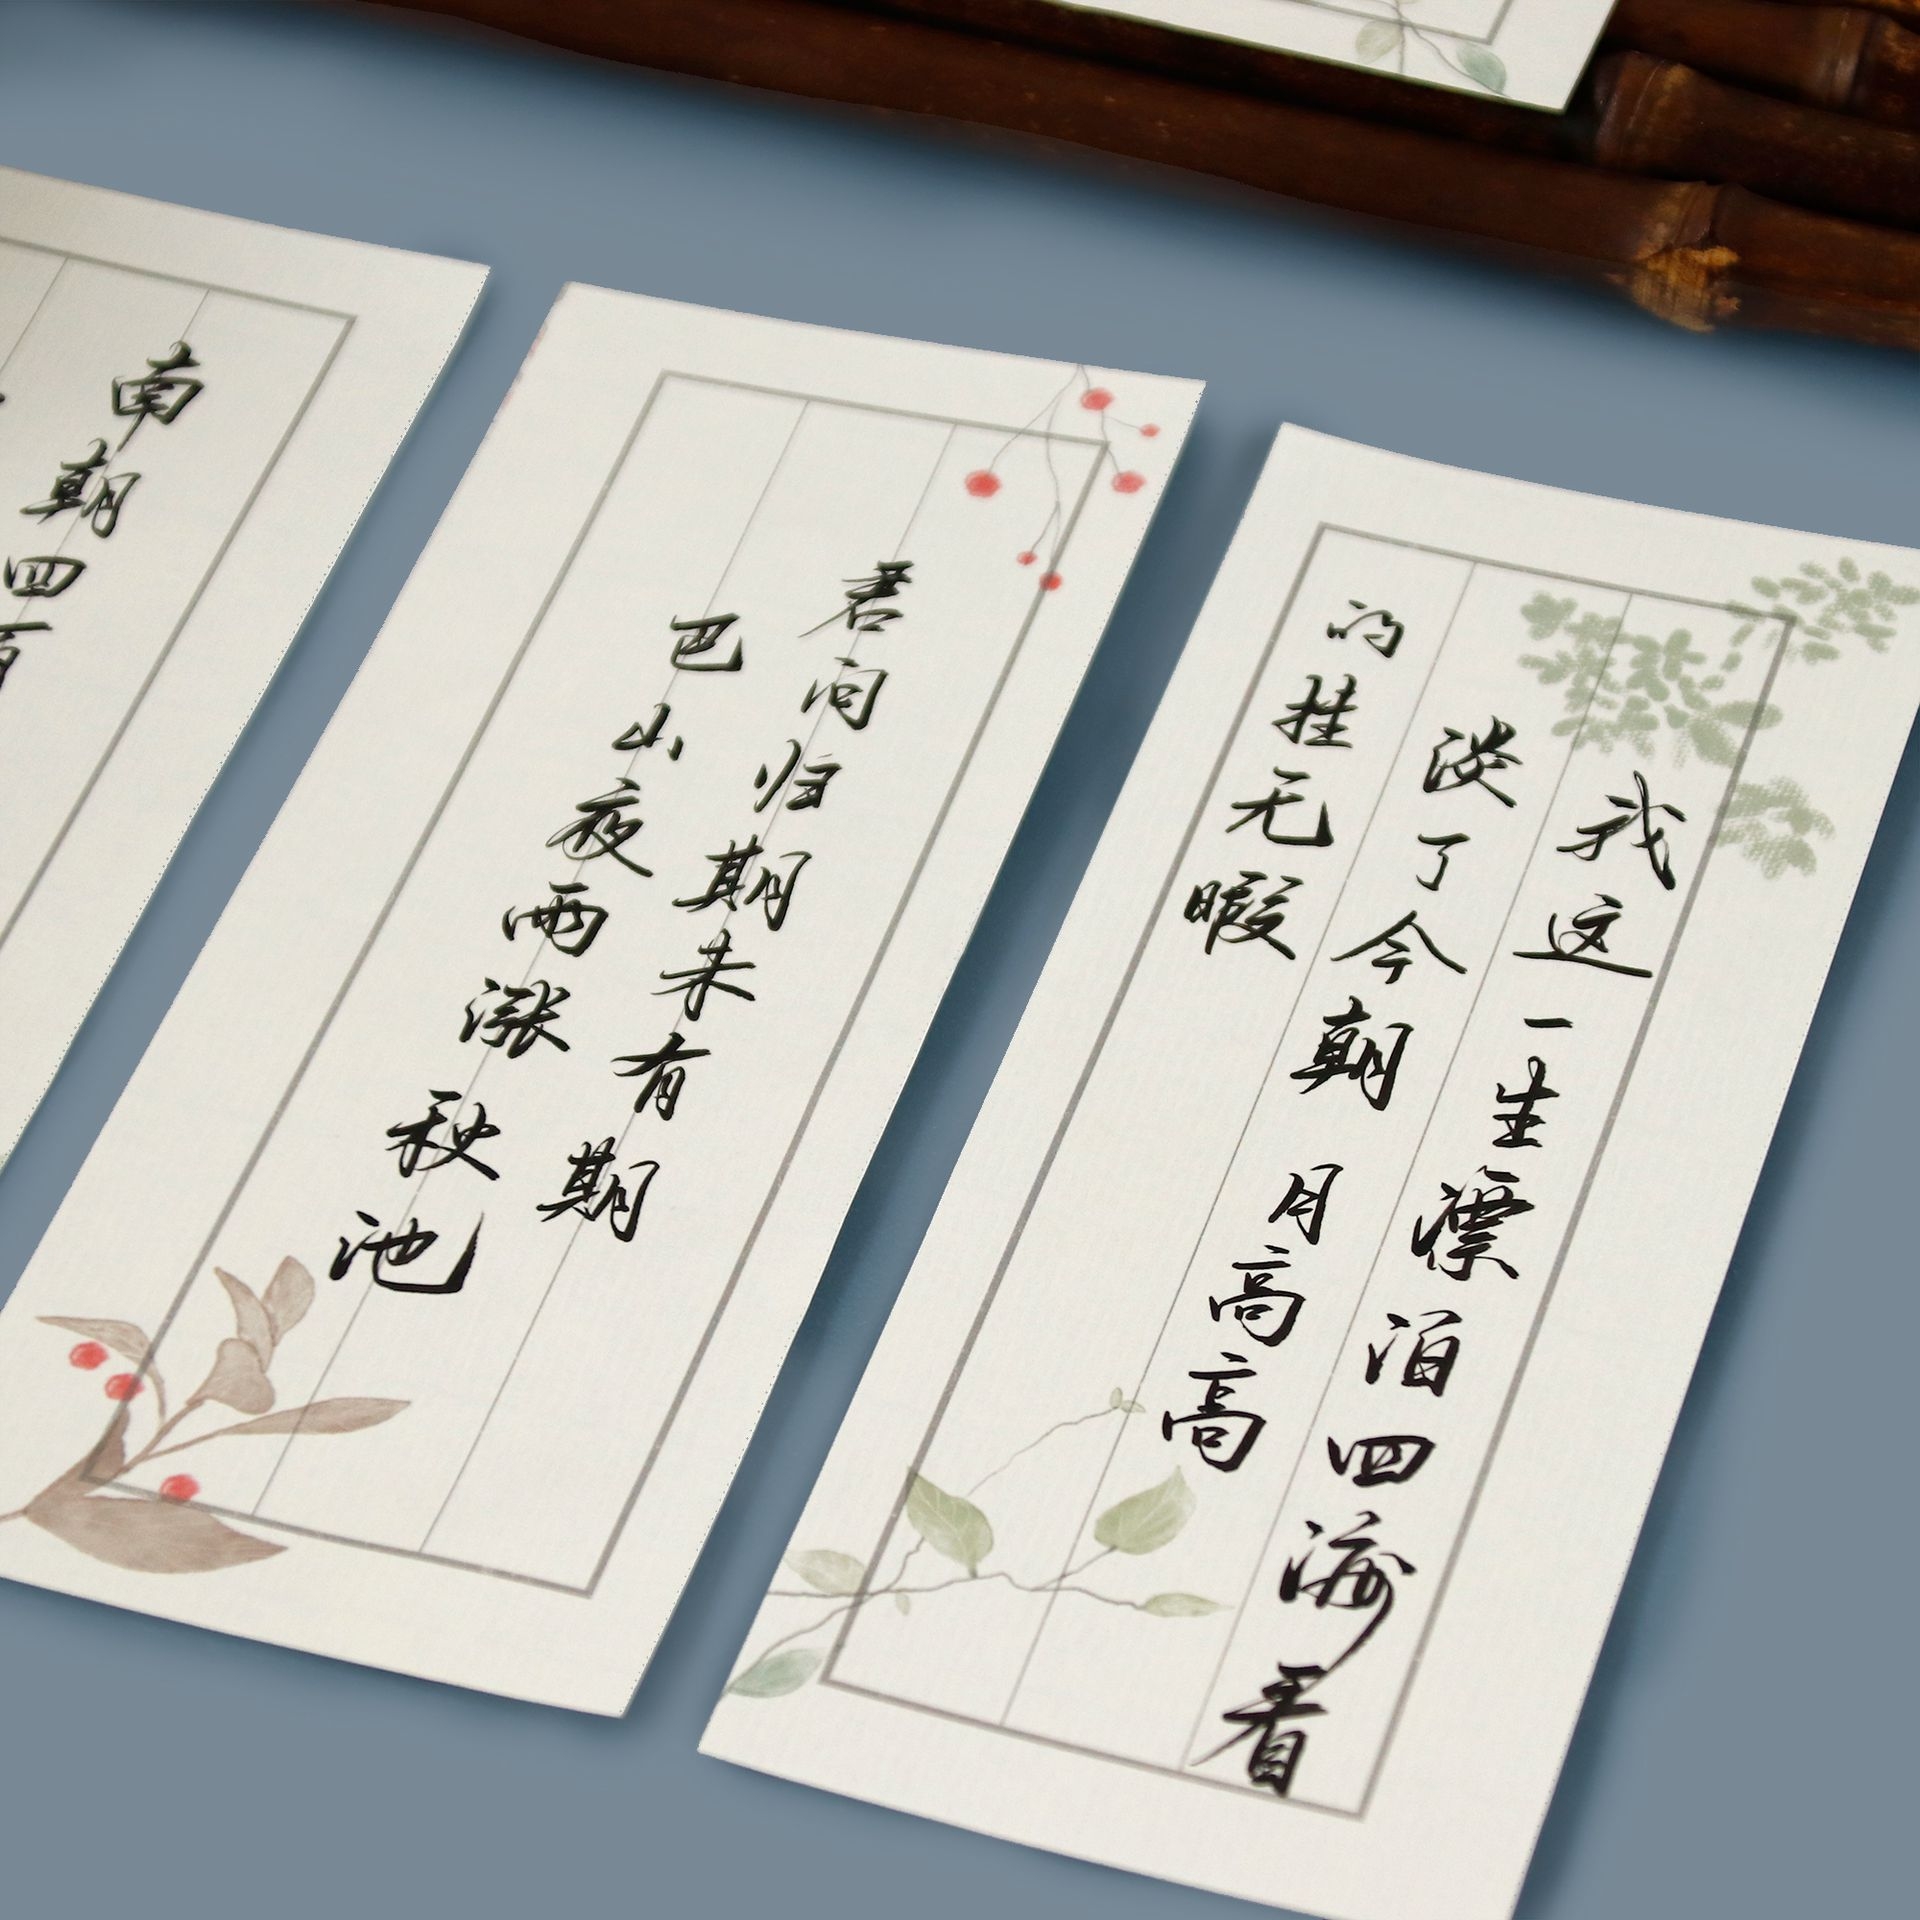 我这一生漂泊四海看
淡了今朝 月高高
的挂无暇
君问归期未有期
巴山夜雨涨秋池
南朝四百